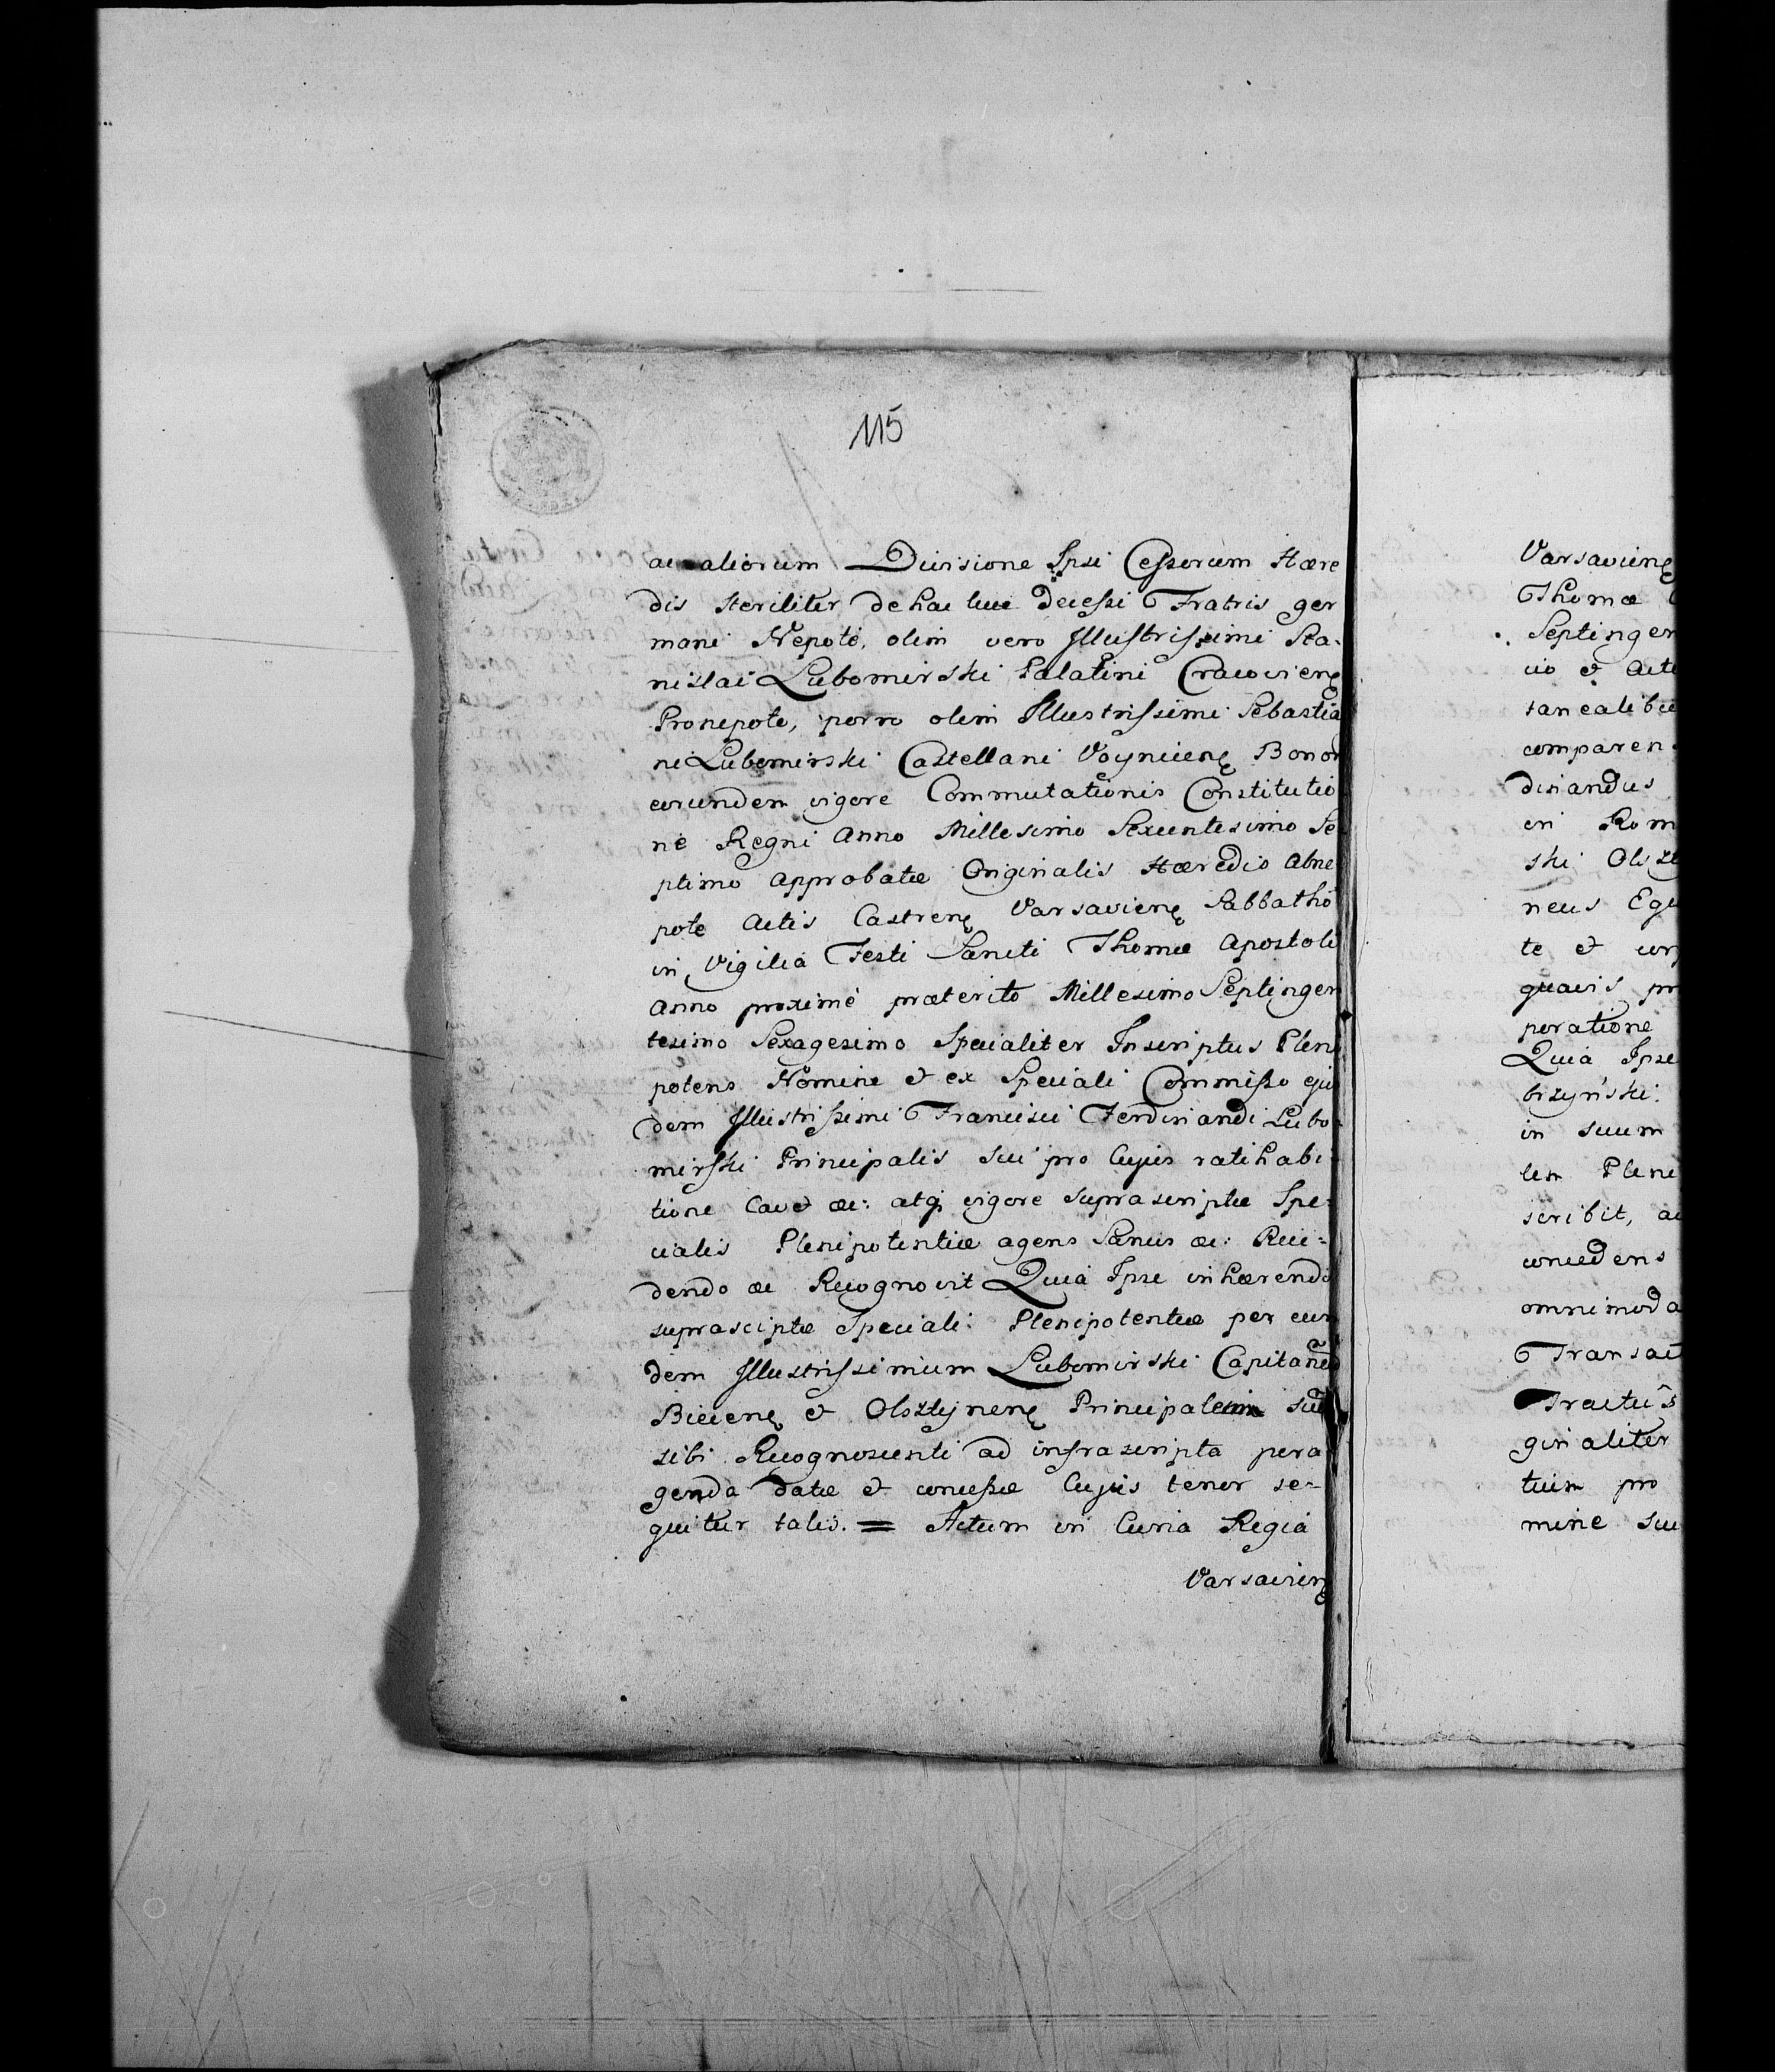 115
ac aliorum Divisione Ipsi Cessorum Hære
dis steriliter de hac luce Decessi Fratris ger
mani Nepote, olim vero Illustrissimi Sta-
nislai Lubomirski Palatini Cracovien̨
Pronepote, porro olim Illustrissimi Sebastia
ni Lubomirski Castellani Voynicien̨ Bonor
eorundem vigore Commutationis Constitutio
ne Regni Anno Millesimo Sexcentesimo Se
ptimo approbatæ Originalis Hæredis Abne
pote Actis Castren̨ Varsavien̨ Sabbatho
in Vigilia Festi Sancti Thomæ Apostoli
Anno proximè præterito Millesimo Septingen
tesimo Sexagesimo Specialiter Inscriptus Pleni
potens Nomine & ex Speciali Commisso ejus
dem Illustrissimi Francisci Ferdinandi Lubo-
mirski Principalis sui pro Cujus ratihabi-
tione Cavet &c: atq; vigore suprascriptæ Spe-
cialis Plenipotentiæ agens Sanus &c: Rece-
dendo &c Recognovit Quia Ipse inhærendo
suprasciptæ Speciali: Plenipotentiæ per eun
dem Illustrissimum Lubomirski Capitaneũ
Biecen̨ & Olsztynen̨ Principalem suũ
sibi Recognoscenti ad infrascripta pera
genda datæ & concessæ Cujus tenor se-
quitur talis. = Actum in Curia Regia
Varsavien̨
Varsavien̨
Thomæ
Septingen
cio & Acti
tanealibu
comparen
dinandus
in Rom
ski Olszt
neus Equ
te &
quavis pr
peratione
Quia Ipse
brzyński:
in suum
lem Pleni
scribit, ac
concedens
omnimoda
Transact
Tractus
ginaliter
tuin pro
mine su